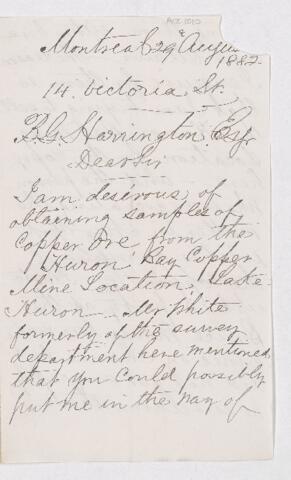 Acc 1010
Montreal 29 August
1882
14 Victoria St.
B.G. Harrington Esq
Dear Sir
I am desirous of
obtaining samples of
Copper Ore from the
Huron Bay Copper
Mine Location, Lake
Huron — Mr White
formerly of the survey
department here mentioned
that you could possibly
put me in the way of